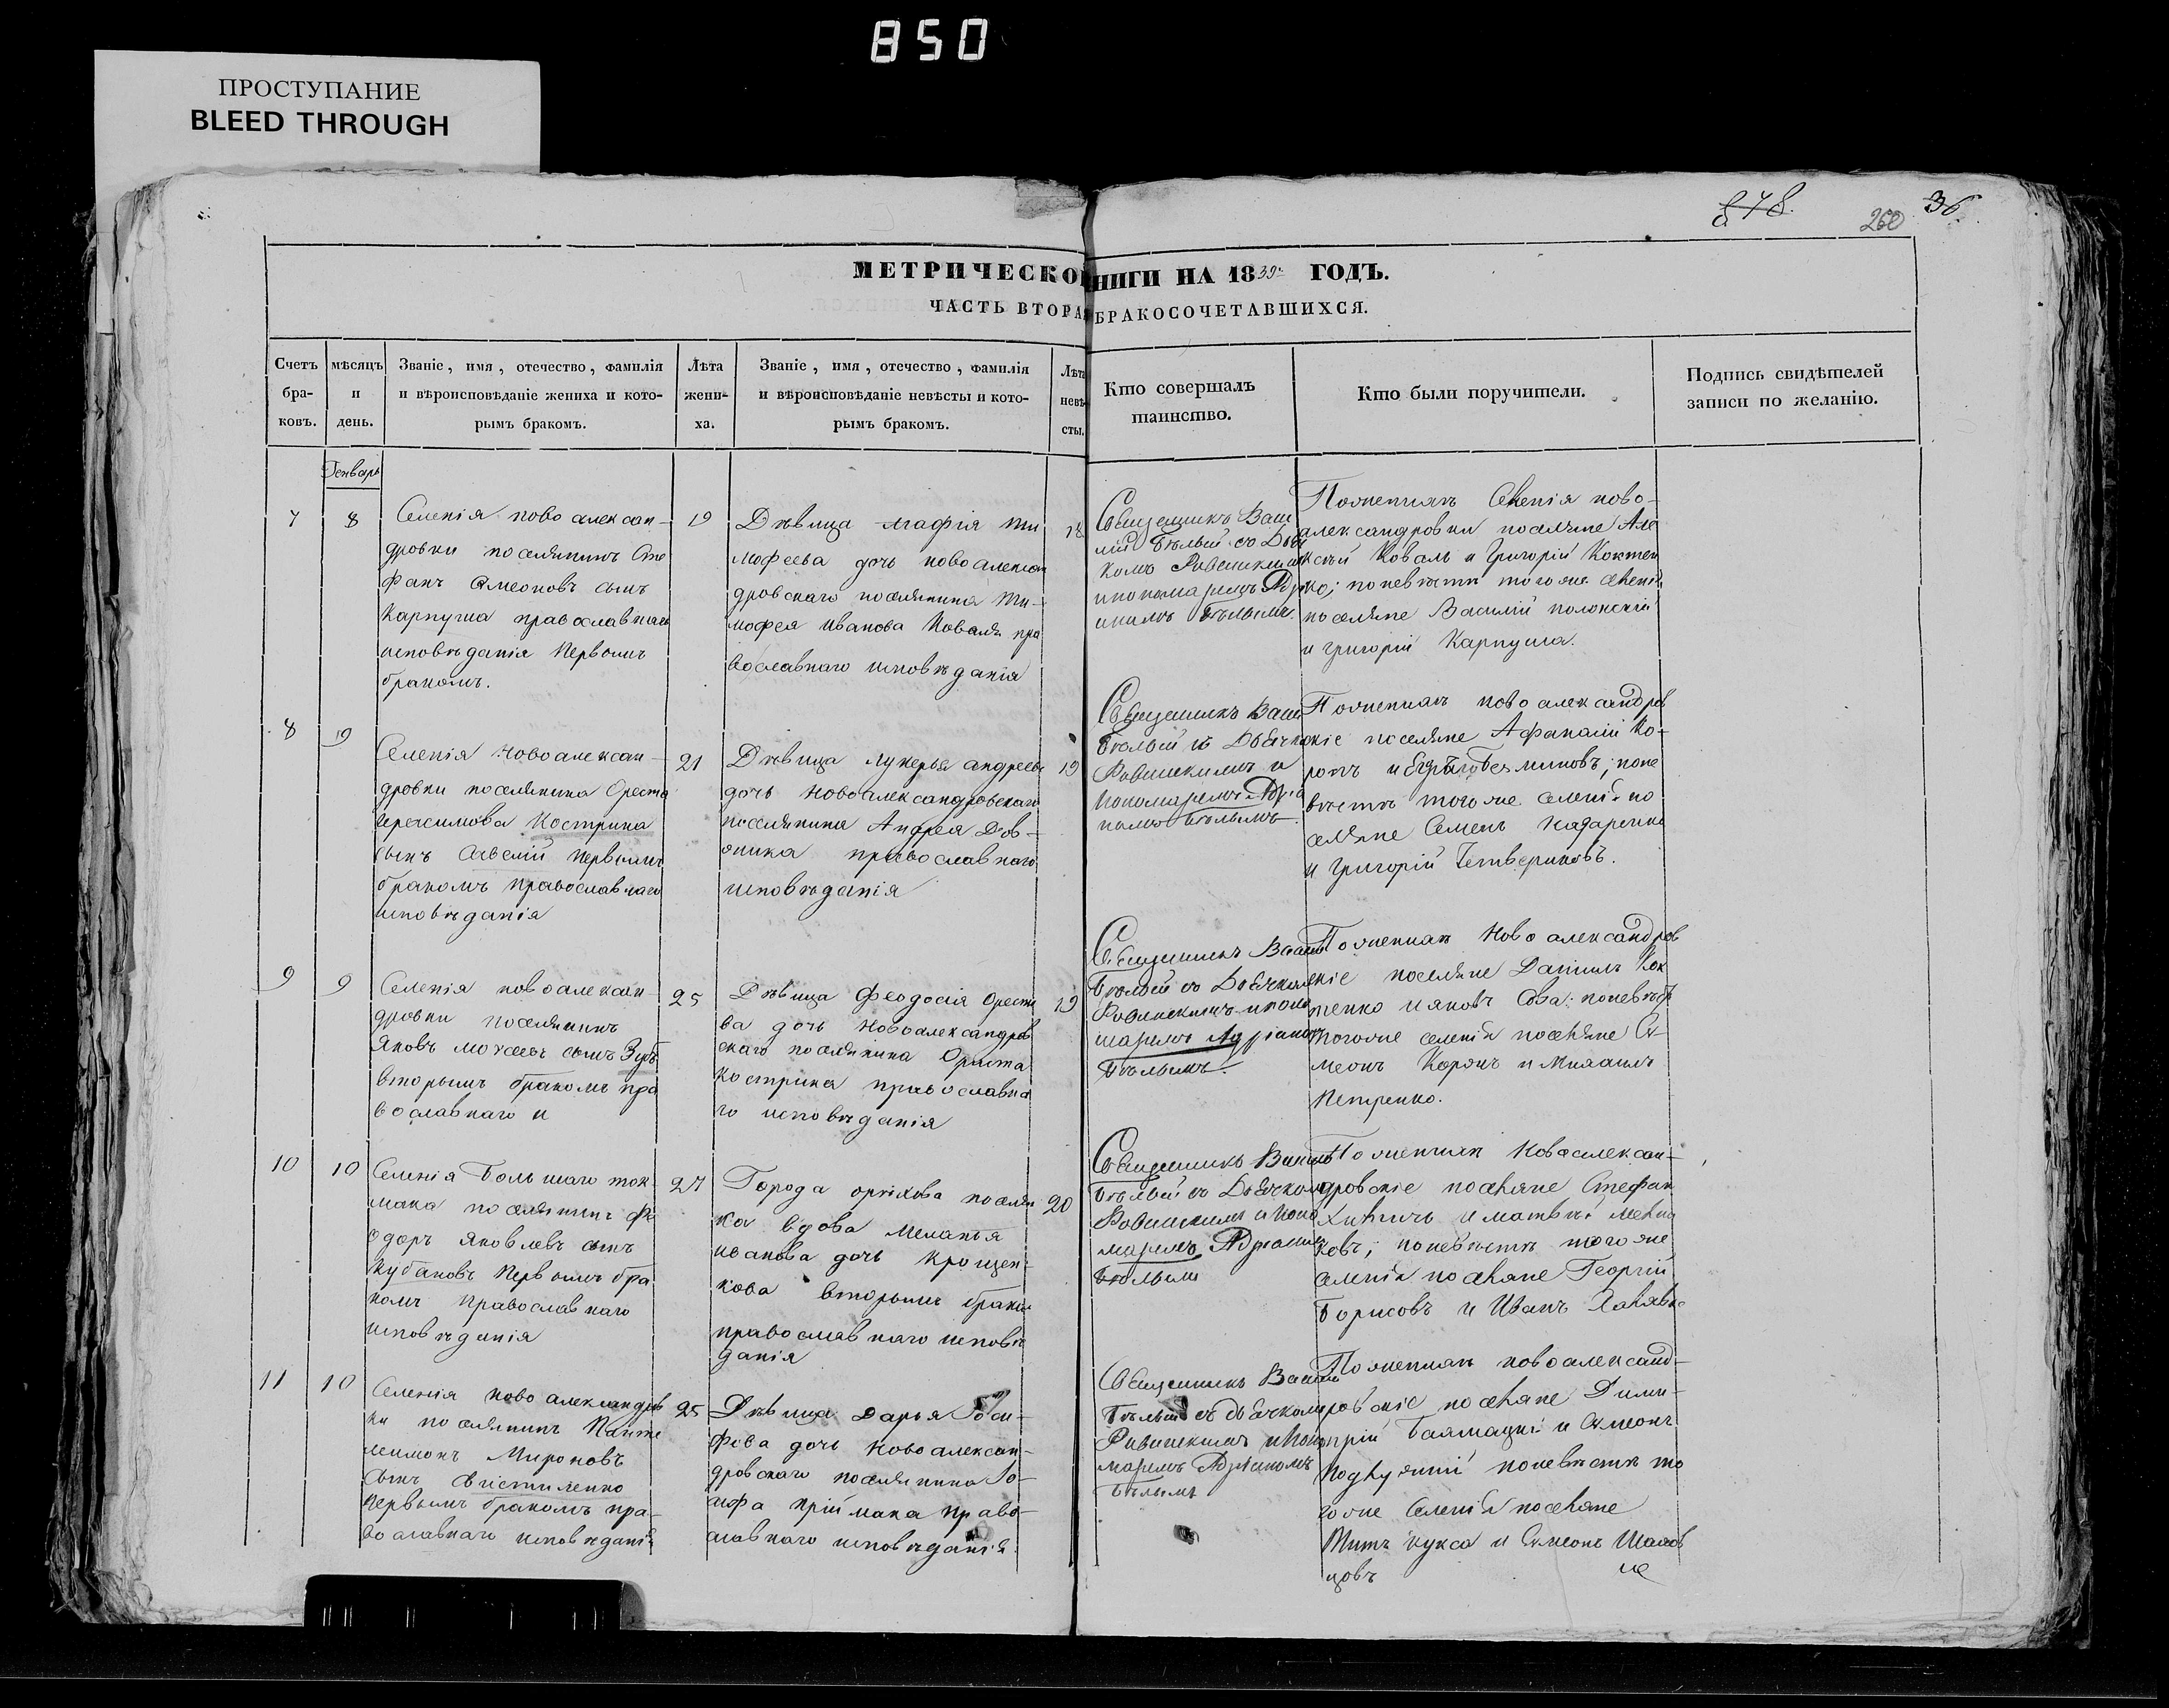 850
ПРОСТУПАНИЕ
BLEED THROUGH
848.
260
36
МЕТРИЧЕСКО НИГИ НА 1839. ГОДЪ.
ЧАСТЬ ВТОРАЯ БРАКОСОЧЕТАВШИХСЯ.
Счетъ бра- ковъ.
мѣсяцъ и день.
Званіе, имя, отечество, фамилія
и вѣроисповѣданіе жениха и кото-
рымъ бракомъ.
Лѣта жени- ха.
Званіе, имя, отечество, фамилія
и вѣроисповѣданіе невѣсты и кото-
рымъ бракомъ.
Лѣта невѣ- сты.
Кто совершалъ
таинство.
Кто были поручители.
Подпись свидѣтелей
записи по желанію.
Генварь
7
8
Селенія новоалексан-
дровки поселянинъ Сте
фанъ Симеоновъ сынъ
Карпуша православнаго
исповѣданія Первымъ
бракомъ.
19
Дѣвица Агафія Ти
мофеева дочь новоалексан
дровскаго поселянина Ти-
мофея Иванова Коваля пра
вославнаго исповѣданія
18
Священникъ Васи
лій Бѣлый съ Дьяч
комъ
Бѣлымъ.
Поженихѣ Селенія ново-
александровки поселяне Але
ксѣй Коваль и Григорій Коктен
ко; поневѣстѣ тогоже селенія
поселяне Василій полонскій
и григорій Карпуша.
8
9
Селенія Новоалексан-
дровки поселянина Ореста
Герасимова Кострика
сынъ Савелій первымъ
бракомъ православнаго
исповѣданія
21
Дѣвица Лукерья андреева
дочь Новоалександровскаго
поселянина Андрея Дов-
жика православнаго
исповѣданія
19
Священникъ Васи
Бѣлый съ Дьячко
и
Пономаремъ Адріа
номъ Бѣлымъ
Поженихѣ новоалександров
скіе поселяне Афанасій Ко-
ржъ и ; поне
вѣстѣ тогоже селенія по
селяне Семенъ
и Григорій Четвериковъ.
9
9
Селенія новоалексан-
дровки поселянинъ
Яковъ сынъ Зубъ
вторымъ бракомъ пра
вославнаго и
25
Дѣвица Феодосія Оресто
ва дочь Новоалександров
скаго поселянина Ореста
Кострика православна
го исповѣданія
19
Священникъ Васи
Бѣлый съ Дьячком
и поно
маремъ Адріаномъ
Бѣлымъ.
Поженихѣ Новоалександров
скіе поселяне Даніилъ Кок
тенко и яковъ Сова: поневѣстѣ
тогоже селенія поселяне Си
меонъ Коржъ и Михаилъ
Петренко.
10
10
Селенія Большаго ток-
мака поселянинъ Фе
одоръ Яковлевъ сынъ
Кубановъ Первымъ бра
комъ Православнаго
исповѣданія
27
Города орѣхова поселян
ка вдова Меланья
иванова дочь Крощен-
кова вторымъ бракомъ
православнаго исповѣ
данія
20
Священникъ Васил
Бѣлый съ Дьячком
и поно
маремъ Адріаномъ
Бѣлымъ
Поженихѣ Новоалексан-
дровскіе поселяне Стефан
и матвѣй
; поневѣстѣ тогоже
селенія поселяне Георгій
Борисовъ и Иванъ
11
10
Селенія новоалександров
ки поселянинъ Панте
леимонъ Мироновъ
сынъ Свистиленко
первымъ бракомъ пра-
вославнаго исповѣданія
25
Дѣвица Дарья Іоси-
фова дочь Новоалексан-
дровскаго поселянина Іо-
сифа Пріймака право-
славнаго исповѣданія.
Священникъ Васи
Бѣлый съ дьячком
и поно
маремъ Адріаномъ
Бѣлымъ
Поженихѣ новоалександ-
ровскіе поселяне Дими-
трій и Симеонъ
поневѣстѣ то
гоже Селенія поселяне
Титъ кукса и Симеонъ Шапов